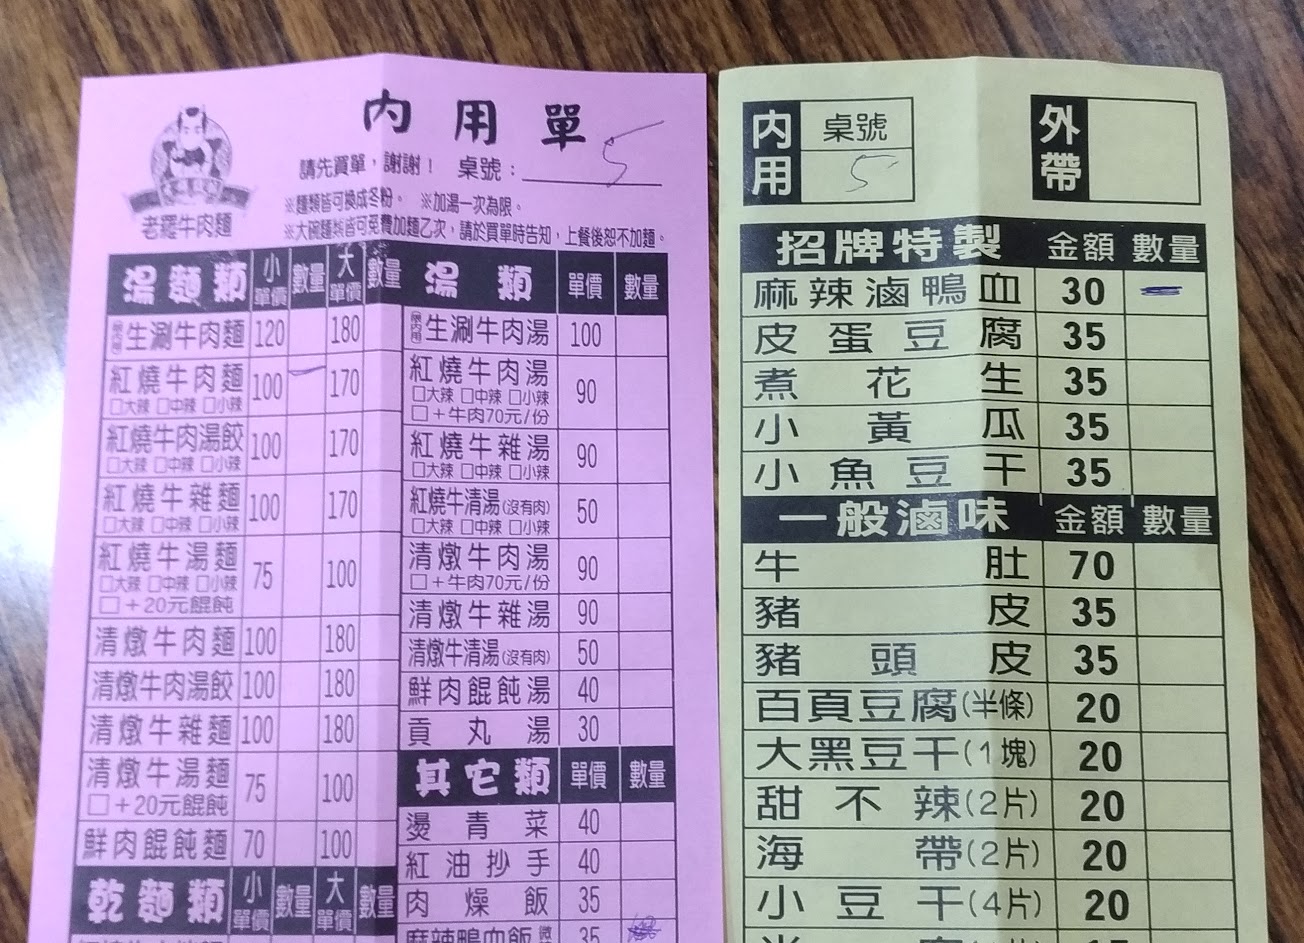 內用單
請先買單，謝謝！ 桌號：5
※麵類皆可換成冬粉。 ※加湯一次為限。
※大碗麵類皆可免費加麵乙次，請於買單時告知，上餐後恕不加麵。
老羅牛肉麵
湯麵類 小單價 數量 大單價 數量
限內用 生涮牛肉麵 120 180
紅燒牛肉麵 100 一 170
□大辣 □中辣 □小辣
紅燒牛肉湯餃 100 170
□大辣 □中辣 □小辣
紅燒牛雜麵 100 170
□大辣 □中辣 □小辣
紅燒牛湯麵 75 100
□大辣 □中辣 □小辣
□+20元餛飩
清燉牛肉麵 100 180
清燉牛肉湯餃 100 180
清燉牛雜麵 100 180
清燉牛湯麵 75 100
□+20元餛飩
鮮肉餛飩麵 70 100
乾麵類 小單價 數量 大單價 數量
湯類 單價 數量
限內用 生涮牛肉湯 100
紅燒牛肉湯 90
□大辣 □中辣 □小辣
□+牛肉70元/份
紅燒牛雜湯 90
□大辣 □中辣 □小辣
紅燒牛清湯(沒有肉) 50
□大辣 □中辣 □小辣
清燉牛肉湯 90
□+牛肉70元/份
清燉牛雜湯 90
清燉牛清湯(沒有肉) 50
鮮肉餛飩湯 40
貢丸湯 30
其它類 單價 數量
燙青菜 40
紅油抄手 40
肉燥飯 35
麻辣鴨血飯 35
內用 桌號 5 外帶
招牌特製 金額 數量
麻辣滷鴨血 30 一
皮蛋豆腐 35
煮花生 35
小黃瓜 35
小魚豆干 35
一般滷味 金額 數量
牛肚 70
豬皮 35
豬頭皮 35
百頁豆腐(半條) 20
大黑豆干(1塊) 20
甜不辣(2片) 20
海帶(2片) 20
小豆干(4片) 20